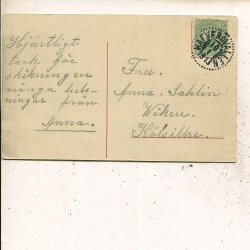 Hjärtligt
tack för
skikningen
många hels-
ningar från
Anna.
Fru.
Anna. Sahlin
Wiken